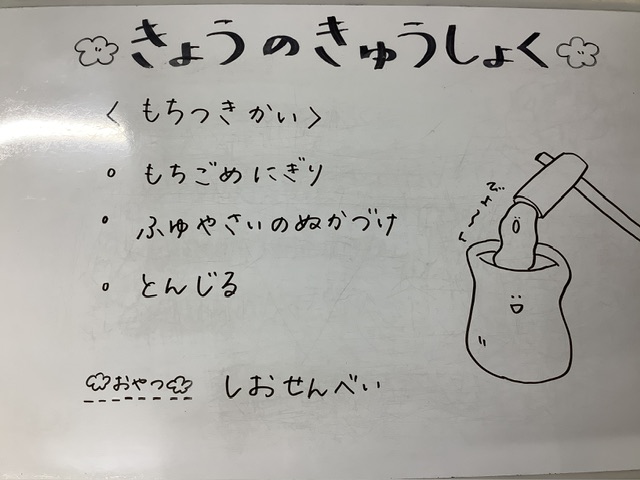 きょうのきゅうしょく
〈もちつきかい〉
もちごめにぎり
ふゆやさいのぬかづけ
とんじる
おやつ しおせんべい